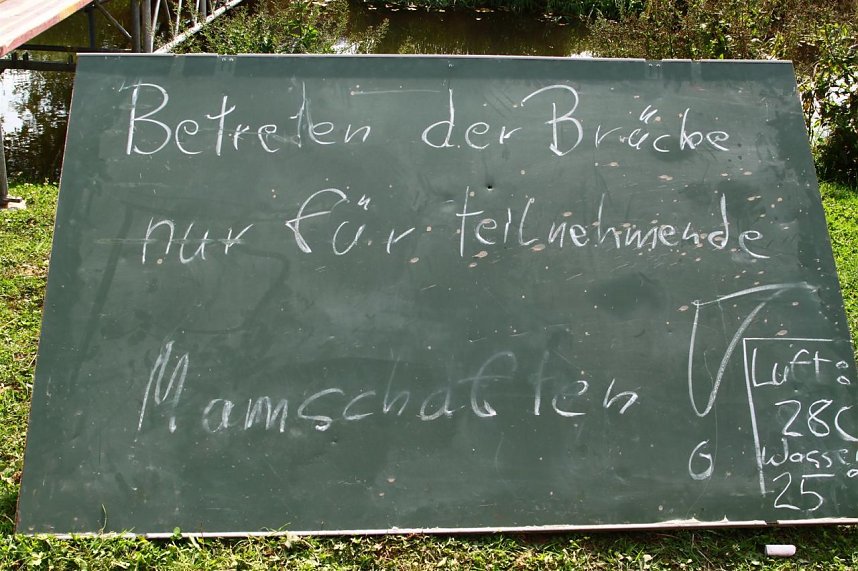 Betreten der Brücke
nur für teilnehmende
Mannschaften !
Luft:
28C
Wasser
25°